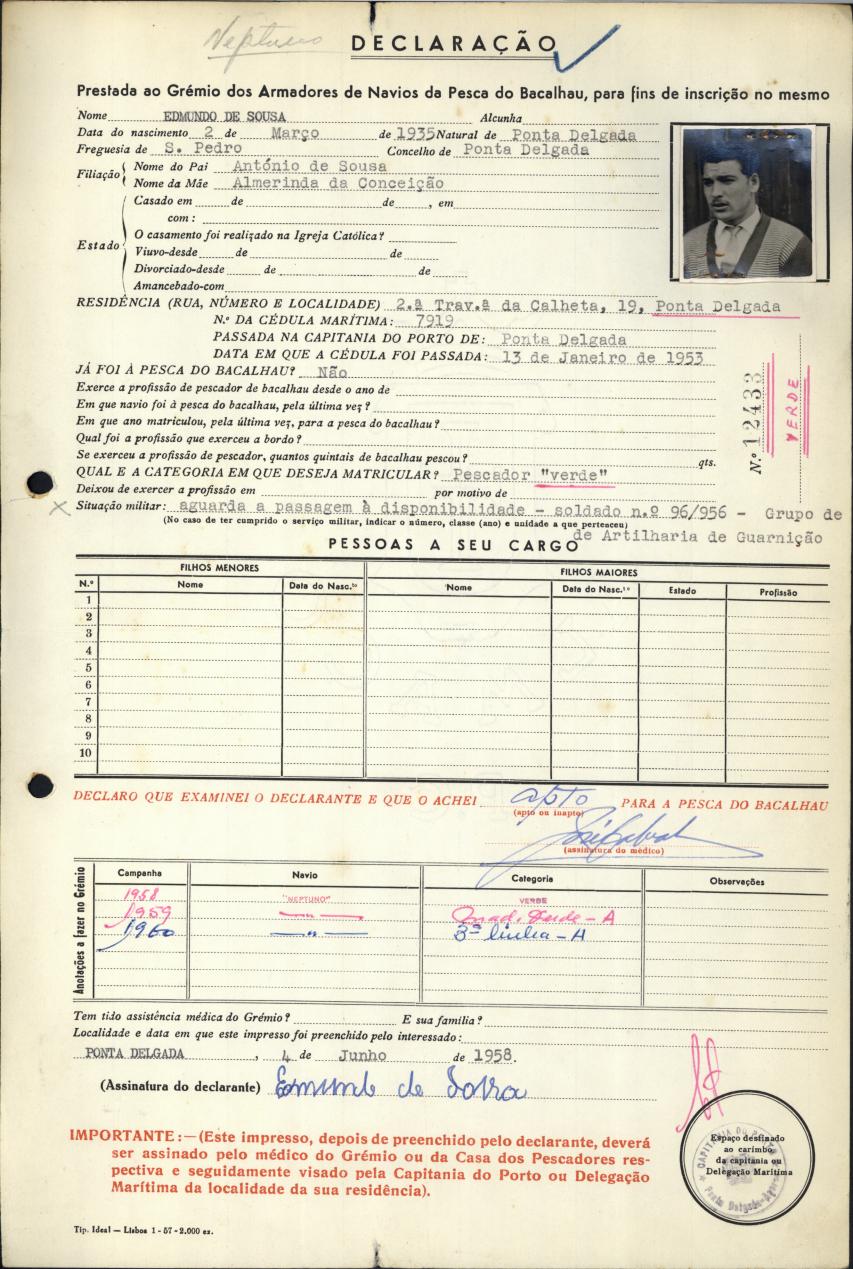 Neptuno
DECLARAÇÃO
Prestada ao Grémio dos Armadores de Navios da Pesca do Bacalhau, para fins de inscrição no mesmo
Nome EDMUNDO DE SOUSA Alcunha
Data do nascimento 2 de Março de 1935 Natural de Ponta Delgada
Freguesia de S. Pedro Concelho de Ponta Delgada
Filiação
Nome do Pai António de Sousa
Nome da Mãe Almerinda da Conceição
Estado
Casado em de de , em
com :
O casamento foi realizado na Igreja Católica?
Viuvo-desde de de
Divorciado-desde de de
Amancebado-com
RESIDÊNCIA (RUA, NÚMERO E LOCALIDADE) 2.ª Trav.ª da Calheta, 19, Ponta Delgada
N.º DA CÉDULA MARÍTIMA: 7919
PASSADA NA CAPITANIA DO PORTO DE: Ponta Delgada
DATA EM QUE A CÉDULA FOI PASSADA: 13 de Janeiro de 1953
JÁ FOI À PESCA DO BACALHAU? Não
Exerce a profissão de pescador de bacalhau desde o ano de
Em que navio foi à pesca do bacalhau, pela última vez?
Em que ano matriculou, pela última vez, para a pesca do bacalhau?
Qual foi a profissão que exerceu a bordo?
Se exerceu a profissão de pescador, quantos quintais de bacalhau pescou? qts.
N.º 12433
VERDE
QUAL E A CATEGORIA EM QUE DESEJA MATRICULAR? Pescador "verde"
Deixou de exercer a profissão em por motivo de
Situação militar: aguarda a passagem à disponibilidade - soldado n.º 96/956 - Grupo de
(No caso de ter cumprido o serviço militar, indicar o número, classe (ano) e unidade a que pertenceu)
de Artilharia de Guarnição
PESSOAS A SEU CARGO
FILHOS MENORES FILHOS MAIORES
N.º Nome Data do Nasc.to Nome Data do Nasc.to Estado Profissão
1
2
3
4
5
6
7
8
9
10
DECLARO QUE EXAMINEI O DECLARANTE E QUE O ACHEI apto PARA A PESCA DO BACALHAU
(apto ou inapto)
(assinatura do médico)
Anotações a fazer no Grémio
Campanha Navio Categoria Observações
1958 "NEPTUNO" VERDE
1959 — " — Mad. Verde - A
1960 — " — 3ª linha - A
Tem tido assistência médica do Grémio? E sua família?
Localidade e data em que este impresso foi preenchido pelo interessado:
PONTA DELGADA , 4 de Junho de 1958.
(Assinatura do declarante) Edmundo de Sousa
IMPORTANTE :—(Este impresso, depois de preenchido pelo declarante, deverá
ser assinado pelo médico do Grémio ou da Casa dos Pescadores res-
pectiva e seguidamente visado pela Capitania do Porto ou Delegação
Marítima da localidade da sua residência).
Espaço destinado
ao carimbo
da capitania ou
Delegação Marítima
CAPITANIA DO PORTO
Ponta Delgada
Tip. Ideal — Lisboa 1 - 57 - 2.000 ex.